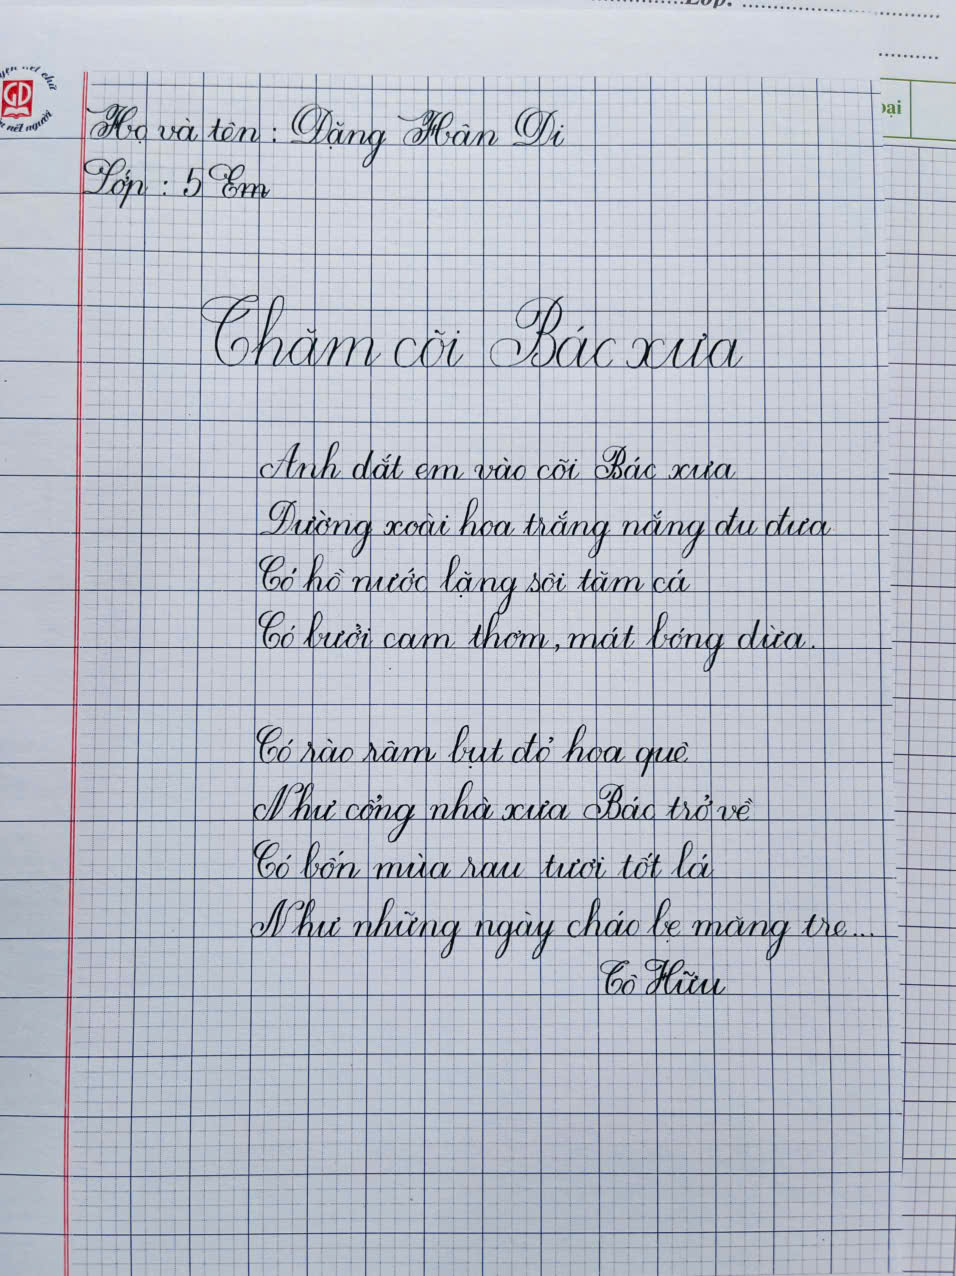 Lớp:
ại
GD
Họ và tên : Đặng Hân Di
Lớp : 5 Em
Thăm cõi Bác xưa
Anh dắt em vào cõi Bác xưa
Đường xoài hoa trắng nắng đu đưa
Có hồ nước lặng sôi tăm cá
Có bưởi cam thơm, mát bóng dừa.
Có rào râm bụt đỏ hoa quê
Như cổng nhà xưa Bác trở về
Có bốn mùa rau tươi tốt lá
Như những ngày cháo bẹ măng tre...
Tố Hữu